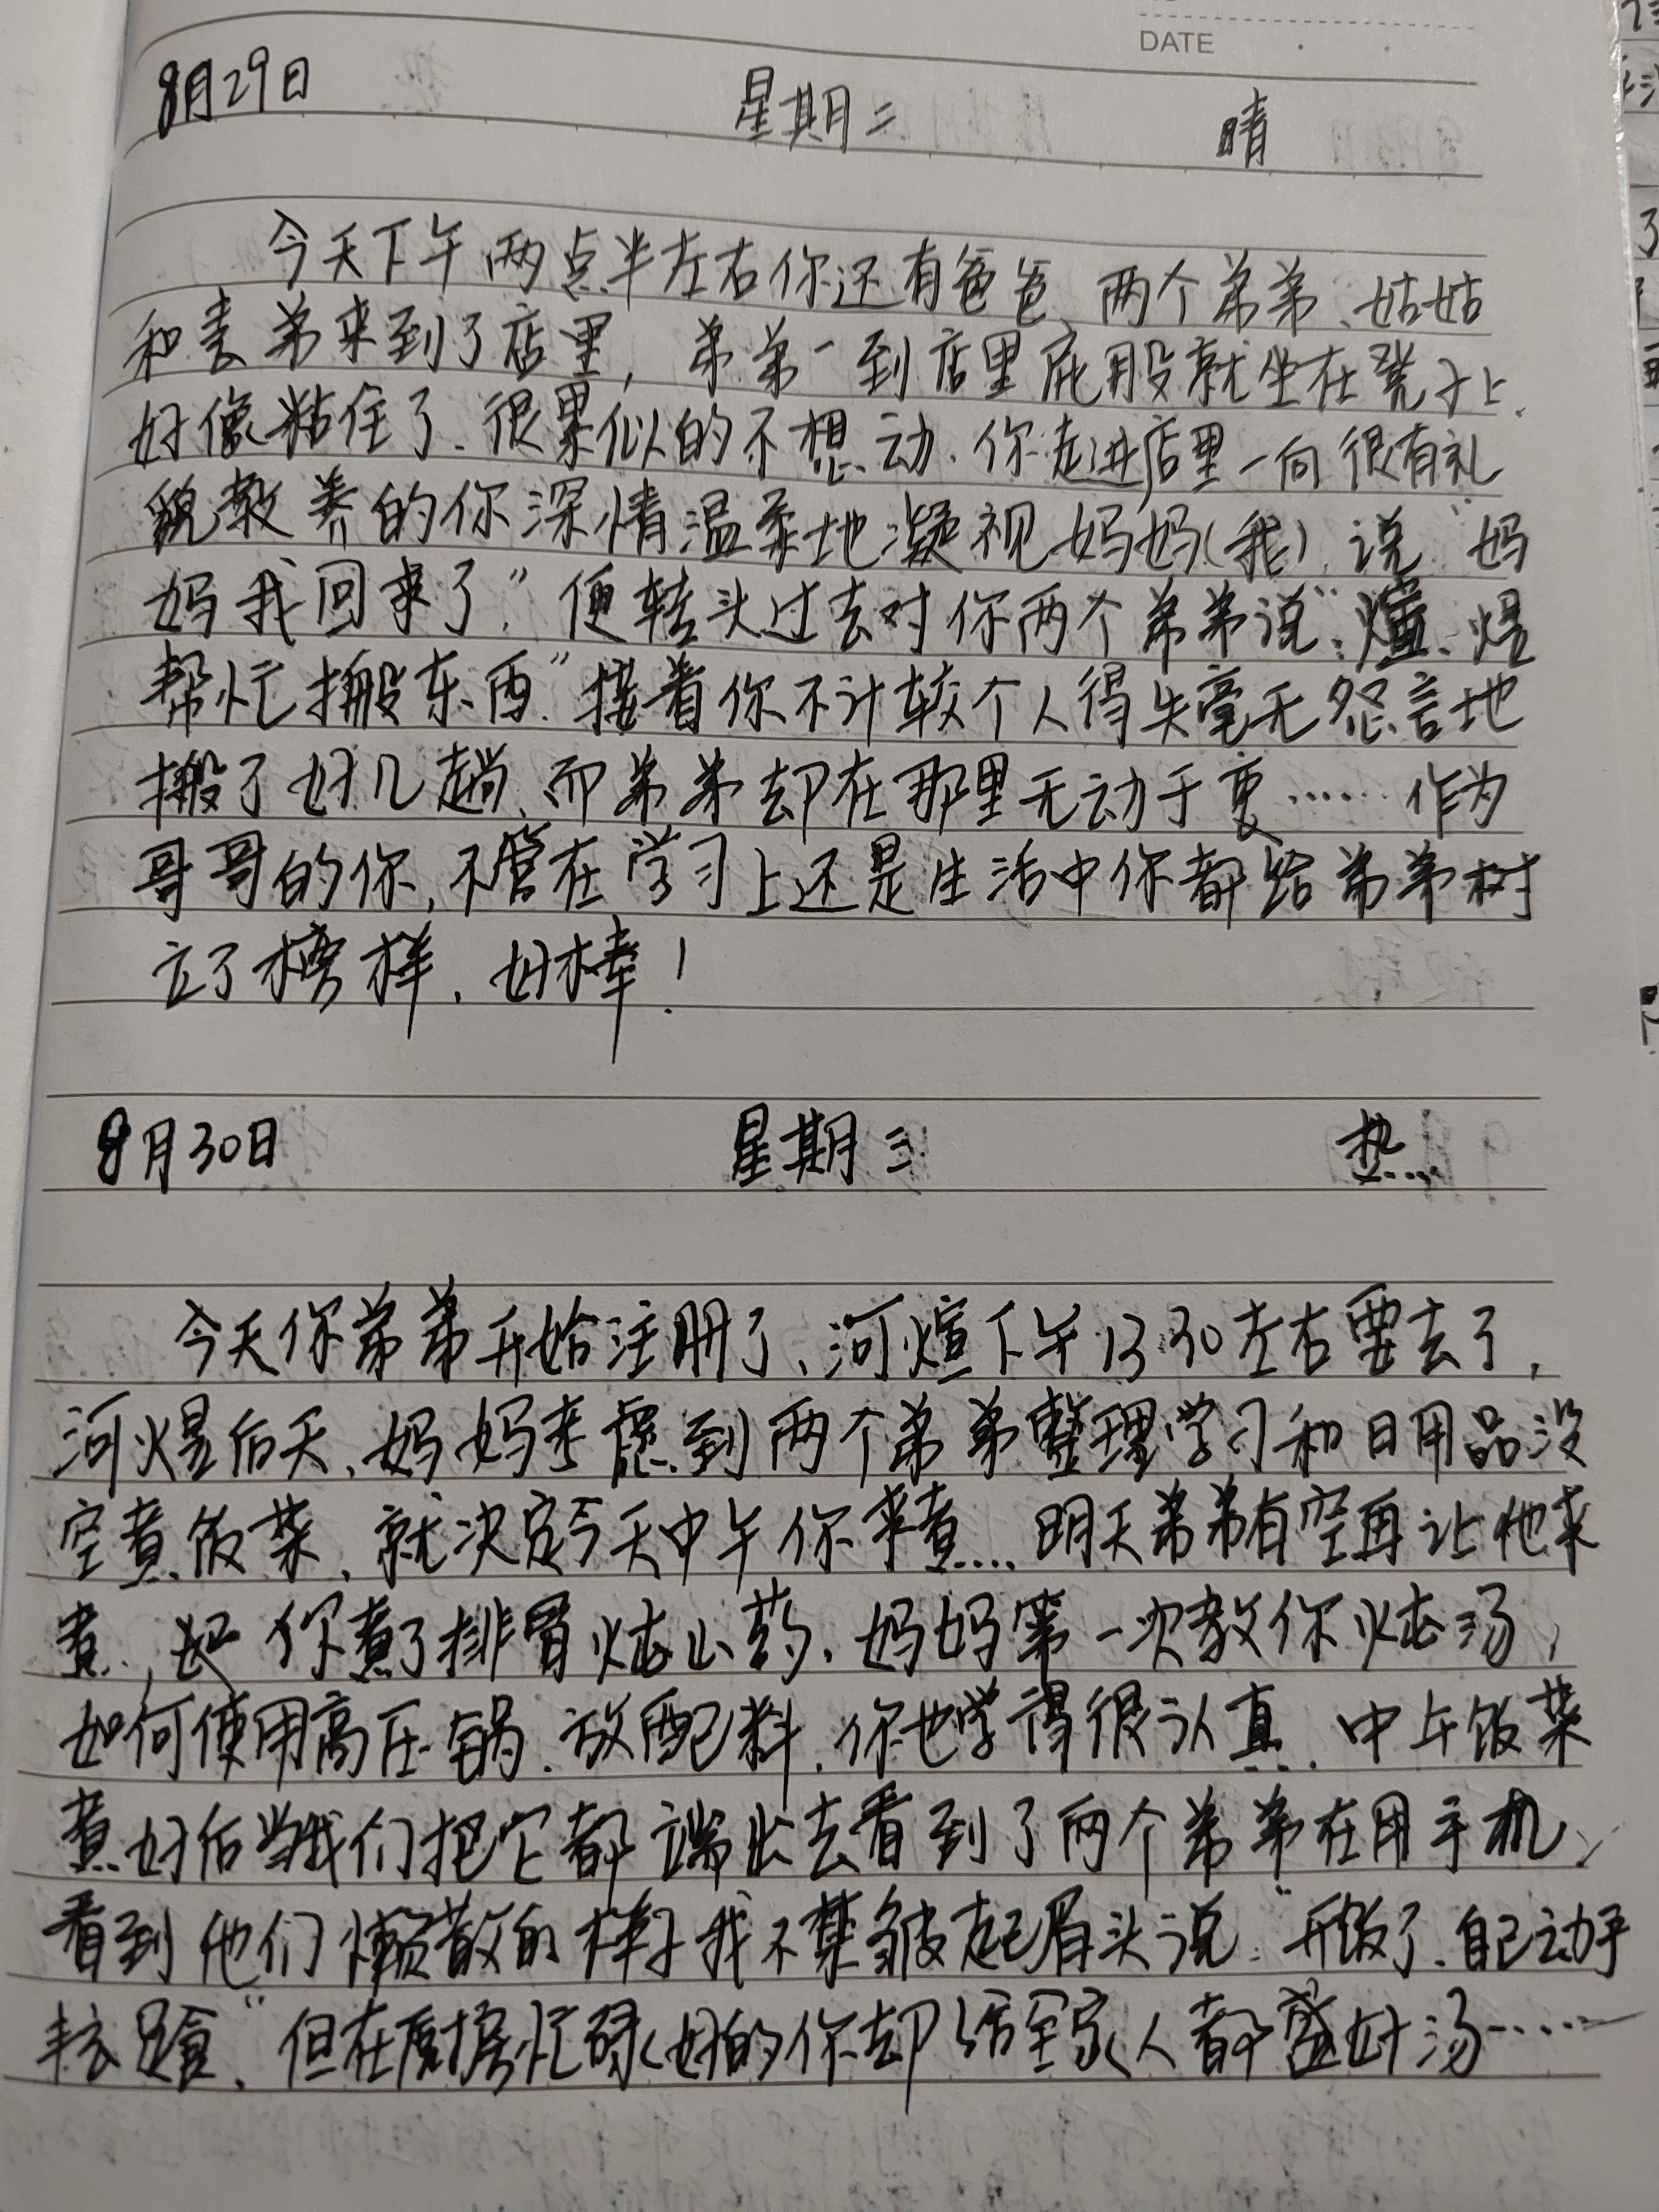 DATE
8月29日 星期二 晴
今天下午两点半左右你还有爸爸、两个弟弟、姑姑
和表弟来到了店里，弟弟一到店里屁股就坐在凳子上、
好像粘住了、很累似的不想动、你走进店里一向很有礼
貌教养的你深情温柔地凝视妈妈(我)、说“妈
妈我回来了”便转头过去对你两个弟弟说：“煊、煜
帮忙搬东西”接着你不计较个人得失毫无怨言地
搬了好几趟、而弟弟却在那里无动于衷……作为
哥哥的你,不管在学习上还是生活中你都给弟弟树
立了榜样、好棒！
8月30日 星期三 热
今天你弟弟开始注册了、河煊下午13:30左右要去了，
河煜后天、妈妈考虑到两个弟弟整理学习和日用品没
空煮饭菜、就决定今天中午你来煮…. 明天弟弟有空再让他来
煮，你煮了排骨炖山药、妈妈第一次教你炖汤，
如何使用高压锅、放配料、你也学得很认真、中午饭菜
煮好后当我们把它都端出去看到了两个弟弟在用手机、
看到他们懒散的样子我不禁皱起眉头说：“开饭了、自己动手
丰衣足食”、但在厨房忙碌好的你却给全家人都盛好汤……